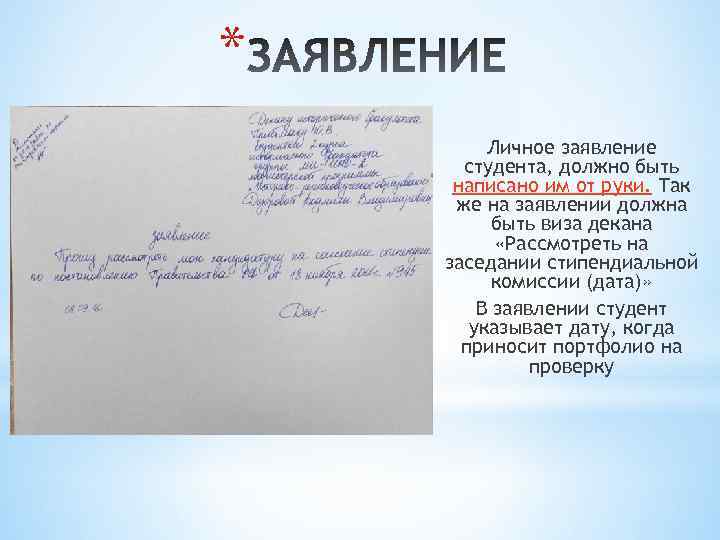 *ЗАЯВЛЕНИЕ
Декану исторического факультета
Ю.В.
студентки 2 курса
исторического факультета
группы
магистерской программы
образование"
Владимировны
заявление
Прошу рассмотреть мою кандидатуру на соискание стипендии
по постановлению Правительства РФ от 18 ноября 2011г. №945
08.09.16
Личное заявление
студента, должно быть
написано им от руки. Так
же на заявлении должна
быть виза декана
«Рассмотреть на
заседании стипендиальной
комиссии (дата)»
В заявлении студент
указывает дату, когда
приносит портфолио на
проверку